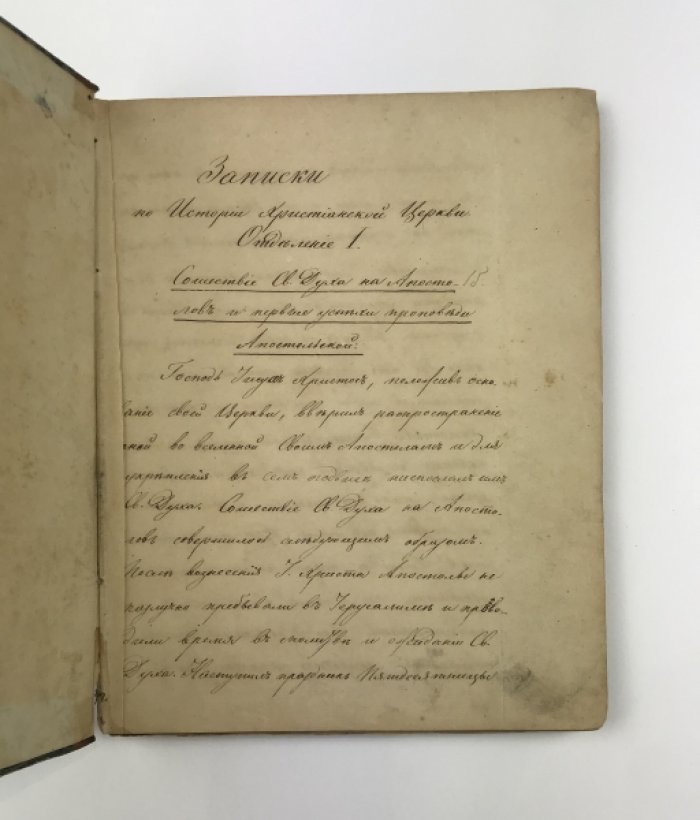 Записки
по Исторіи Христіанской Церкви
Отдѣленіе I.
Сошествіе Св. Духа на Апосто-
ловъ и первые успѣхи проповѣди
Апостольской:
Господь Іисусъ Христосъ, положивъ осно-
ваніе своей Церкви, ввѣрилъ распространеніе
во вселенной Своимъ Апостоламъ и для
укрѣпленія въ семъ подвигѣ ниспослалъ имъ
Св. Духа. Сошествіе Св. Духа на Апосто-
ловъ совершилось слѣдующимъ образомъ.
Послѣ вознесенія І. Христа Апостолы не
разлучно пребывали въ Іерусалимѣ и прово-
дили время въ молитвѣ и ожиданіи Св.
Духа. Наступилъ праздникъ Пятдесятницы